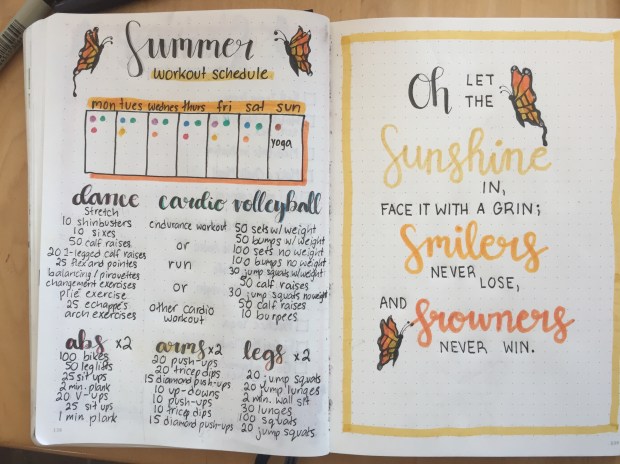 Summer
workout schedule
mon tues wednes thurs fri sat sun
yoga
dance
stretch
10 shinbusters
10 sixes
50 calf raises
20 1-legged calf raises
25 flex and pointes
balancing/pirouettes
changement exercises
plié exercise
25 echappés
arch exercises
cardio
endurance workout
or
run
or
other cardio
workout
volleyball
50 sets w/ weight
50 bumps w/ weight
100 sets no weight
100 bumps no weight
30 jump squats w/ weight
50 calf raises
30 jump squats no weight
50 calf raises
10 burpees
abs x2
100 bikes
50 leg lifts
25 sit ups
2 min. plank
20 V-ups
25 sit ups
1 min plank
arms x2
20 push-ups
20 tricep dips
15 diamond push-ups
10 up-downs
10 push-ups
10 tricep dips
15 diamond push-ups
legs x2
20 jump squats
20 jump lunges
2 min. wall sit
30 lunges
100 squats
20 jump squats
Oh LET
THE
Sunshine
IN,
FACE IT WITH A GRIN;
Smilers
NEVER
LOSE,
AND
frowners
NEVER WIN.